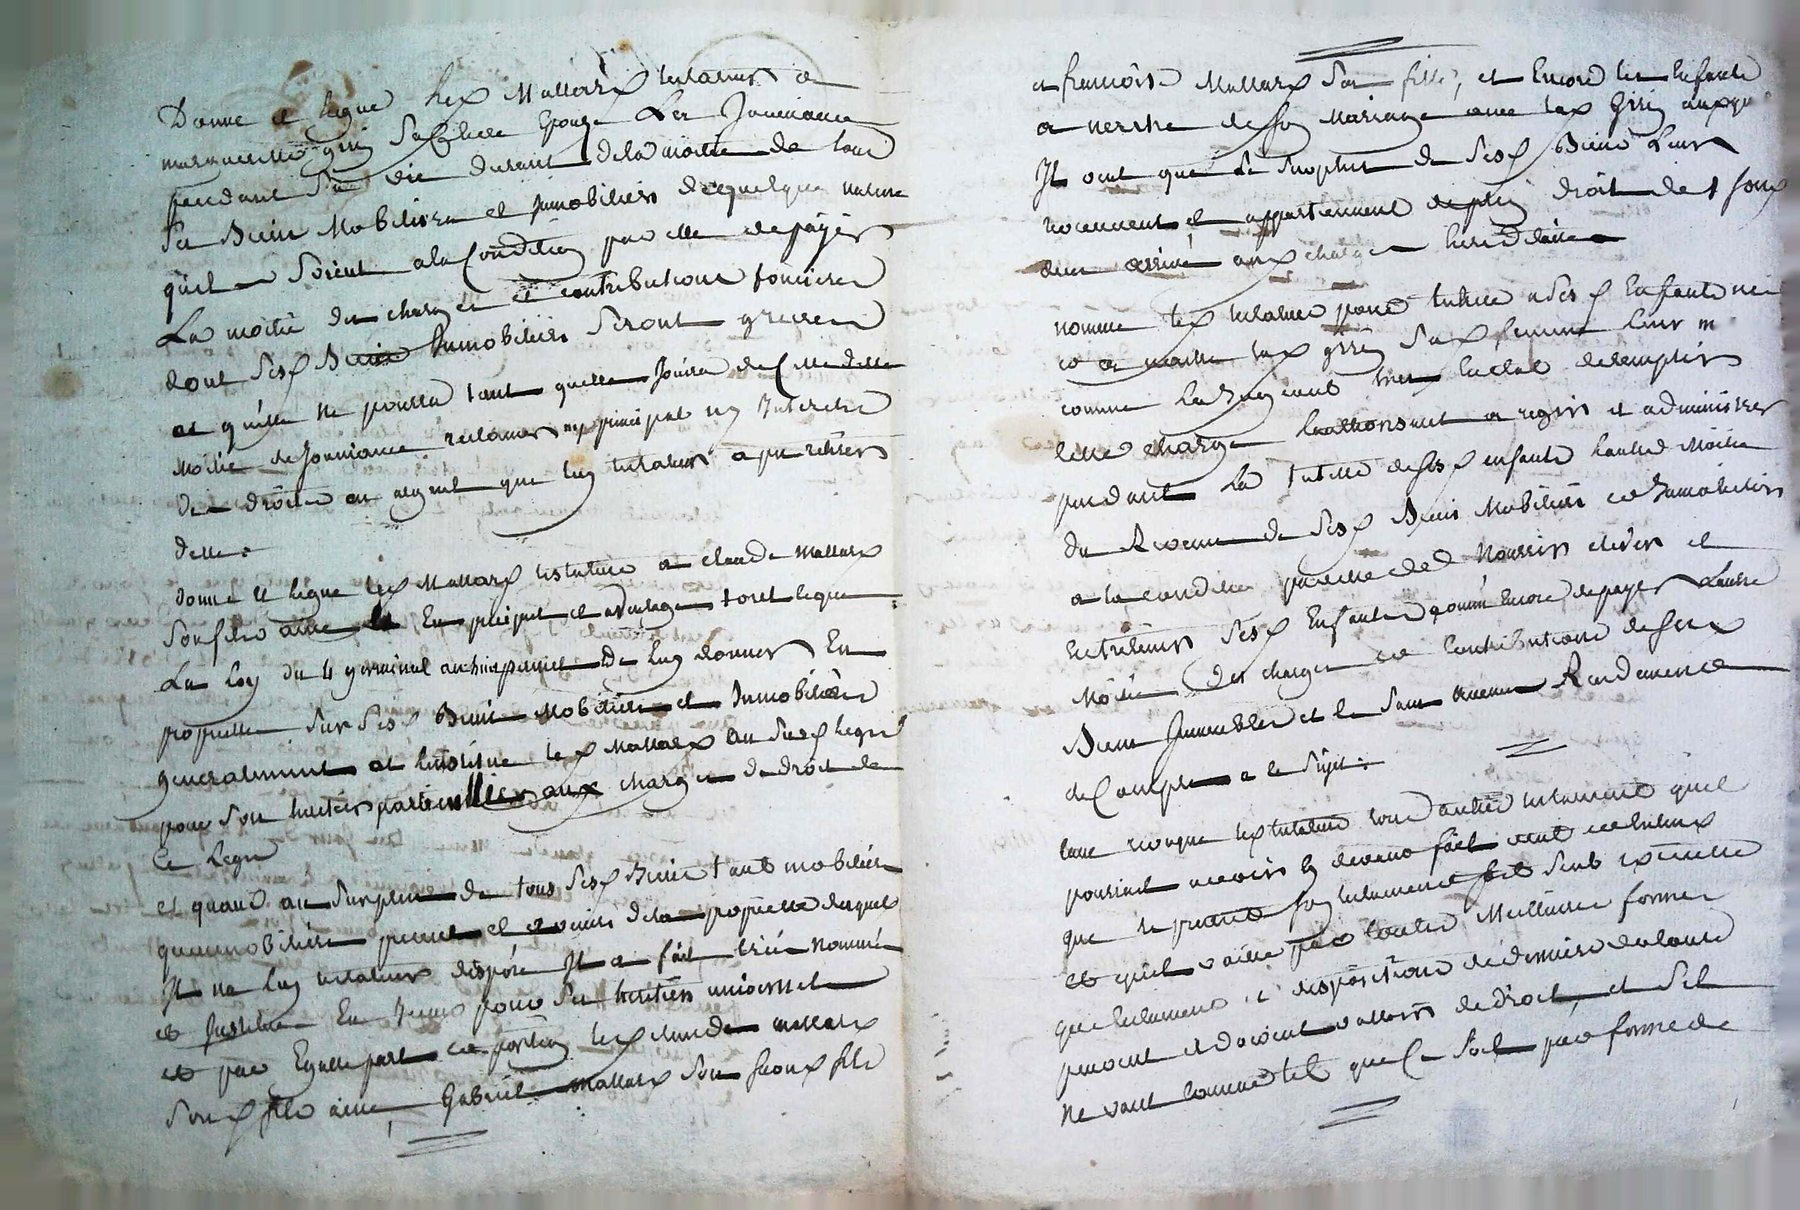 Donne et legue led Mallard testateur a
marguerite grin Sa chere Epouse La Jouissance
pendant Sa vie durant de la moitié de tous
Ses Biens Mobiliers et Immobiliers de quelque nature
quils Soient a la Condition par elle de payer
La moitié des charges et contributions foncieres
dont Sesd Biens Immobiliers Seront greves
et quelle ne pourra tant quelle Jouira de Cette ditte
Moitié de Jouissance reclamer ny principal ny Interets
de droits en argent que led testateur a pu retirer
delle.
donne et legue led Mallard testateur a claude Mallard
Son fils ainé En preciput et avantage tout ce que
La Loy du 4 germinal an huit permet de luy donner En
propriette Sur Sesd Biens Mobiliers et Immobiliers
generalement et Institue led Mallard au Susd legs
pour Son heritier particullier aux charges de droit de
Ce Legs
et quand au Surplus de tous Sesd Biens tant mobiliers
quimmobiliers presents et avenirs de la propriette desquels
Il na led testateur disposé Il a fait crée nommé
et Institue En Iceux pour Ses heritiers universels
et par Egalle part et portion led claude mallard
Sond fils ainé, Gabriel Mallard Son Second fils
et francoise Mallard Sa fille, et Encore les Enfants
a nertre de Son Mariage avec lad Grin auxquels
Il veut que le Surplus de Sesd Biens Leurs
reviennent et appartiennent de plein droit de
aux charges hereditaires
nomme led testateur pour tutrice a Sesd Enfants nes
et a naitre lad grin Sad femme leur
comme la Jugeant tres Capable de remplir
cette charge Lauthorisant a regir et administrer
pendant La tutelle de Sesd enfants lautre Moitié
du Revenu de Sesd Biens Mobiliers et Immobiliers
a la condition par elle de Nourrir elever et
Entretenir Sesd Enfants comm Encore de payer Lautre
Moitié des charges et Contributions de Ses
Biens Immeubles et le Sans aucune Reddition
de Compte a ce Sujet.
Casse revoque led testateur tous autres testaments quil
pourrait avoir cy devant fait veut et Entend
que le present Son testament Soit Seul executté
et quil vaille par toutes Meilleures formes
que testament et dispositions de derniere volonté
peuvent et doivent valloir de droit, et Sil
Ne vaut Comme tel que Ce Soit par forme de